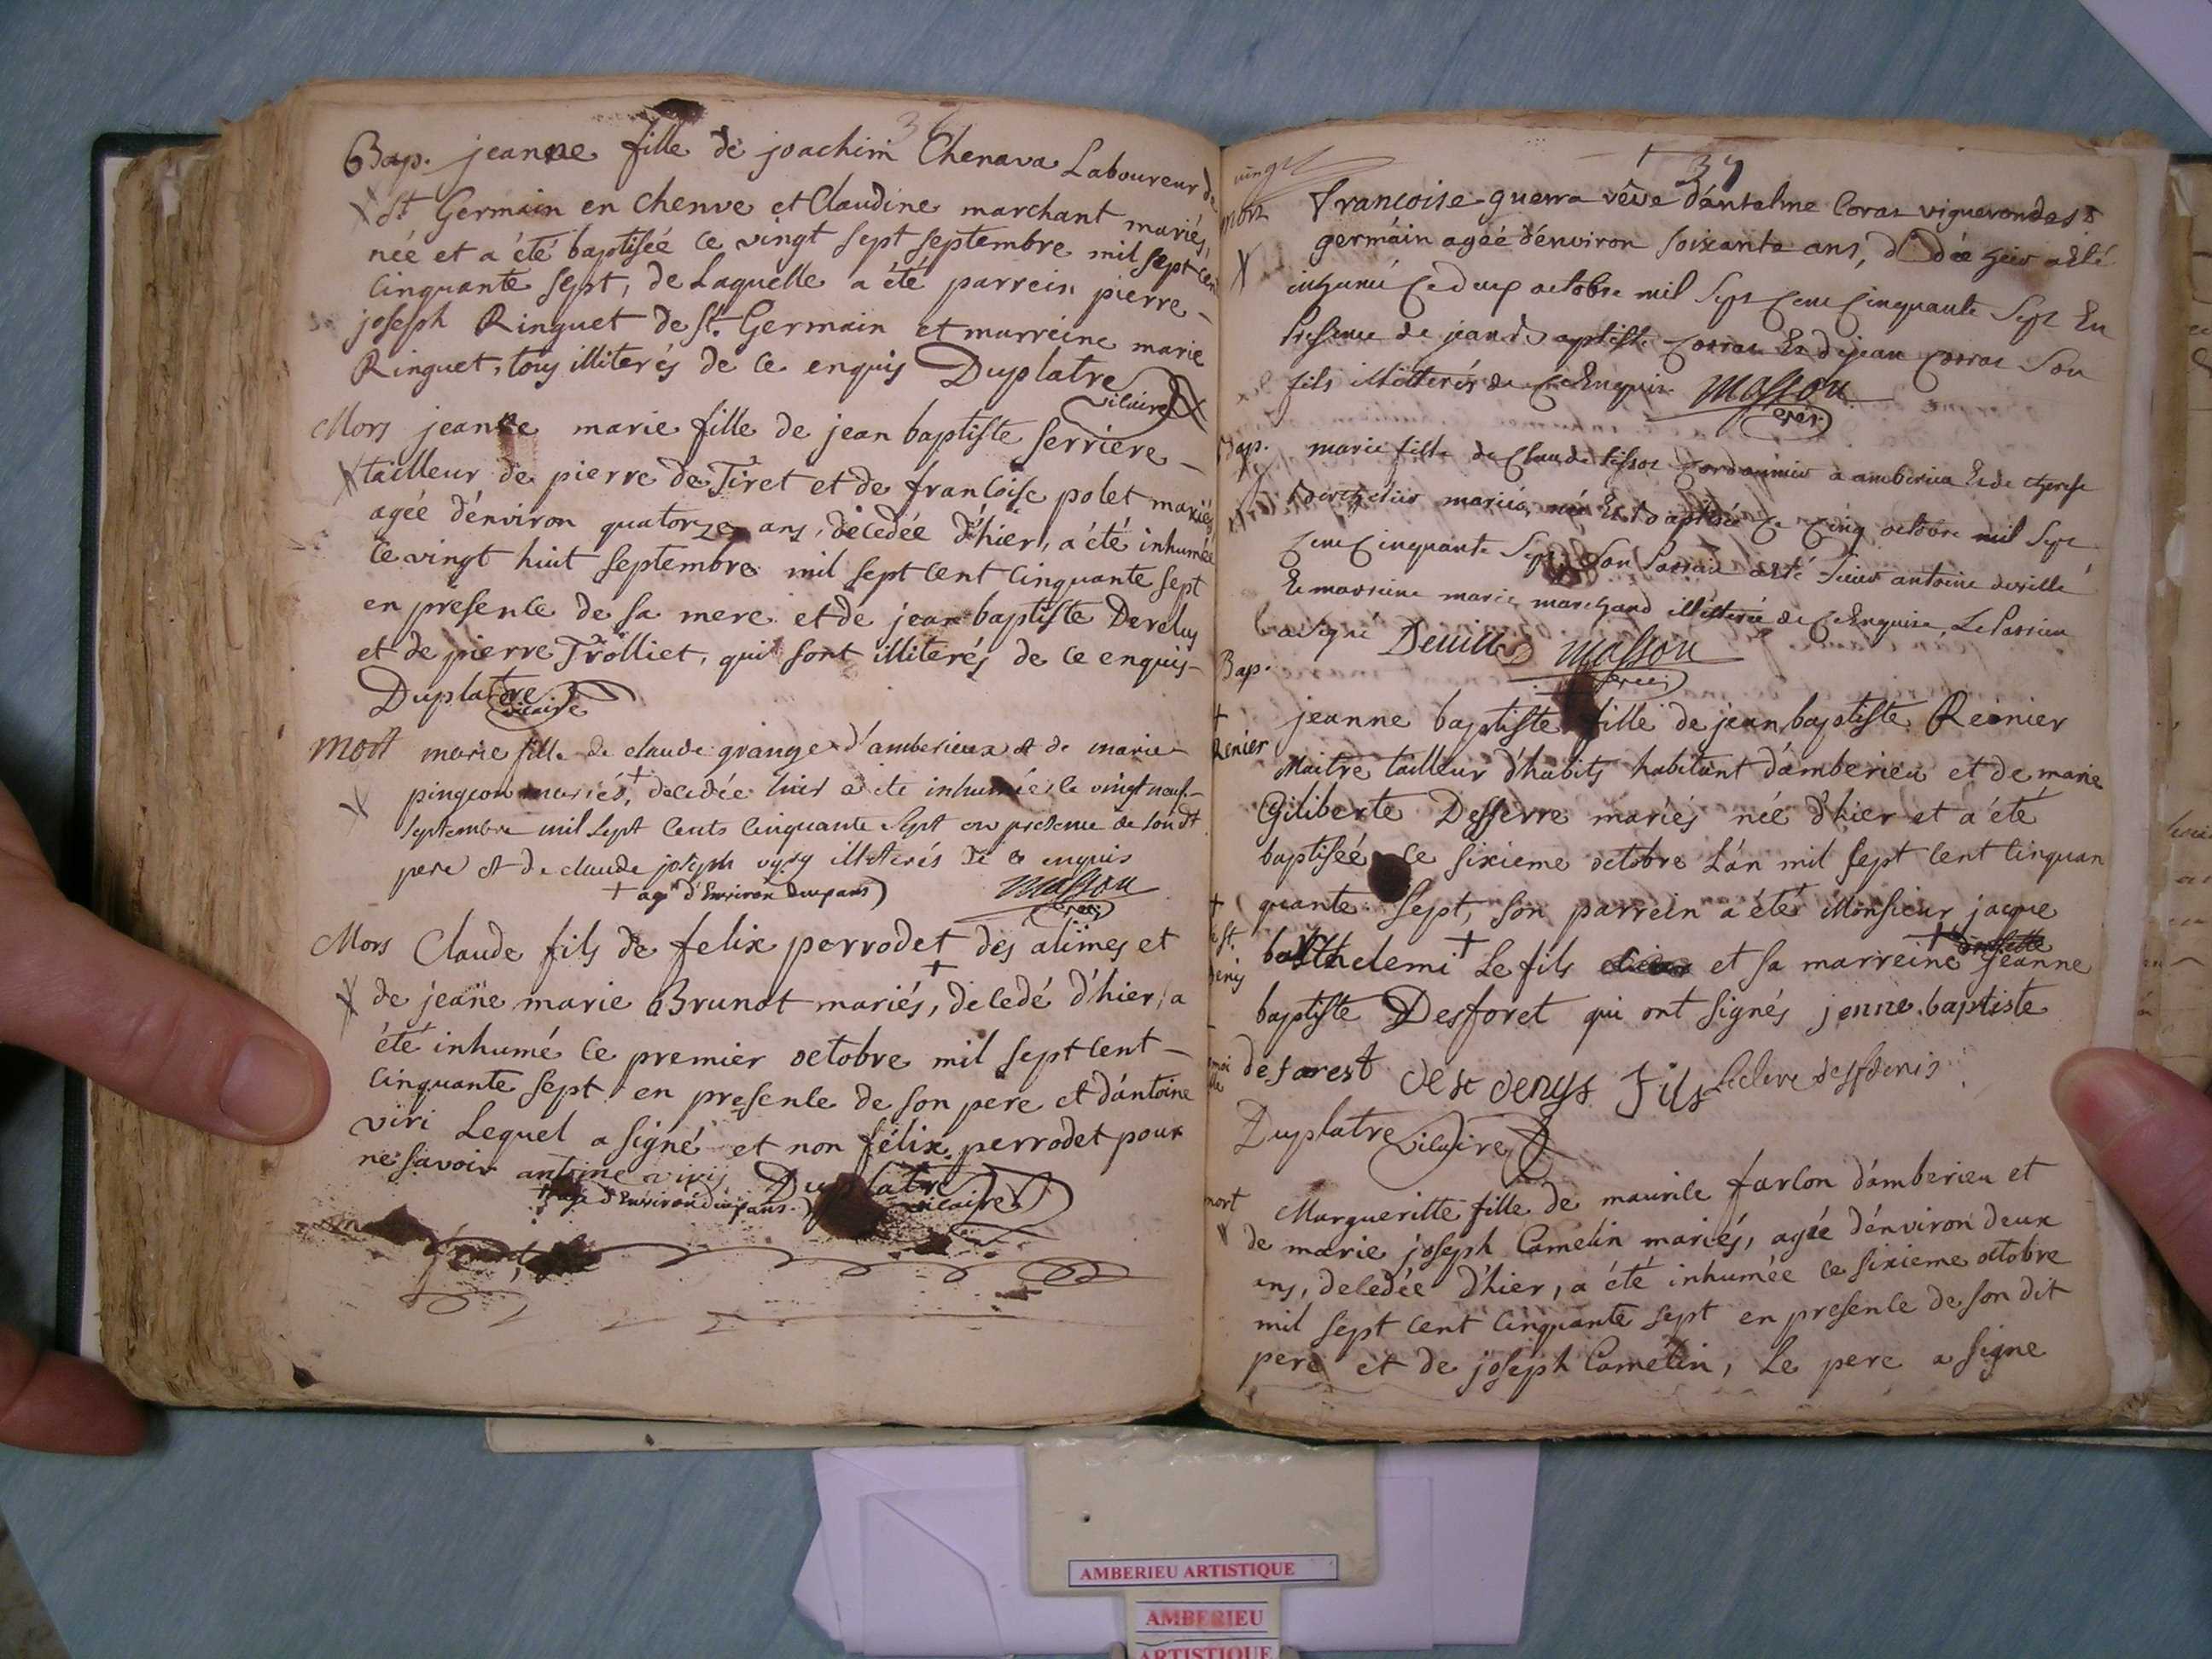 Bap. jeanne fille de joachim Chenava Laboureur de
St Germain en chenve et Claudine marchant mariés,
née et a été baptisée ce vingt sept septembre mil sept cen
Cinquante sept, de Laquelle a été parrein pierre
joseph Ringuet de St. Germain et marreine marie
Ringuet, tous illiterés de ce enquis Duplatre
vicaire
Mors jeanne marie fille de jean baptiste ferriere
tailleur de pierre de Tiret et de francoise polet mariés
agée d'environ quatorze ans, decedée d'hier, a été inhumée
ce vingt huit septembre mil sept cent cinquante sept
en presence de sa mere et de jean baptiste Dereluy
et de pierre Trolliet, qui sont illiterés de ce enquis
Duplatre
vicaire
mort marie fille de claude grange d'amberieux et de marie
pingeon mariés,+ decedée hier a été inhumée le vingt neuf
septembre mil sept cents cinquante sept en presence de son dt
pere et de claude joseph illiterés de ce enquis
+ agée d'Environ deux ans
masson
curé
Mors Claude fils de felix perrodet des alimes et
de jeane marie Brunot mariés,+ decedé d'hier, a
été inhumé ce premier octobre mil sept cent
cinquante sept en presence de son pere et d'antoine
viri Lequel a signé et non félix perrodet pour
ne savoir antoine viri Duplatre
+ age d'Environ dix ans vicaire
37
vingt
mors francoise guerra vêve d'antelme Coras vigneron de st
germain agée d'environ soixante ans, d dée hier a esté
inhumé ce deux octobre mil sept cent cinquante sept En
presence de jean baptiste corras Et de jean corras son
fils illitterés de ce Enquis masson
curé
Bap. marie fille de Claude tissot cordonnier a amberieu Et de therese
berthelier mariés, née Et baptisée ce cinq octobre mil sept
cent cinquante sept, son parrain a été sieur antoine deville
Et marrieine marie marchand illitterée de ce Enquise, Le Parrien
a signé Deville masson
curé
Bap.
+
Renier
jeanne baptiste fille de jean baptiste Reinier
Maitre tailleur d'habits habitant d'amberieu et de marie
Giliberte Desserre mariés née d'hier et a été
baptiseé ce sixieme octobre L'an mil sept cent cinquan
quante sept, son parrein a été Monsieur jacque
+
de St.
denis
barthelemi + Le fils et sa marreine + jeanne
baptiste Desforet qui ont signés jenne baptiste
+
moi
selle
deforest de st denys Fils Leclere de st denis
Duplatre vicaire
mort Margueritte fille de maurile farlon d'amberieu et
de marie joseph Camelin mariés, agée d'environ deux
ans, decedée d'hier, a été inhumée ce sixieme octobre
mil sept cent cinquante sept en presence de son dit
pere et de joseph Camelin, Le pere a signe
AMBERIEU ARTISTIQUE
AMBERIEU
ARTISTIQUE